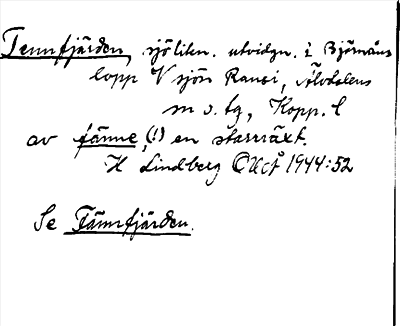 Tennfjärden, sjöliten. utvidgn. i Björnåns
lopp V sjön Ransi, Älvdalens
m s. tg, Kopp. l
av fänne, (!) en starrväxt.
H Lindberg OUÅ 1944:52
Se Tännfjärden.